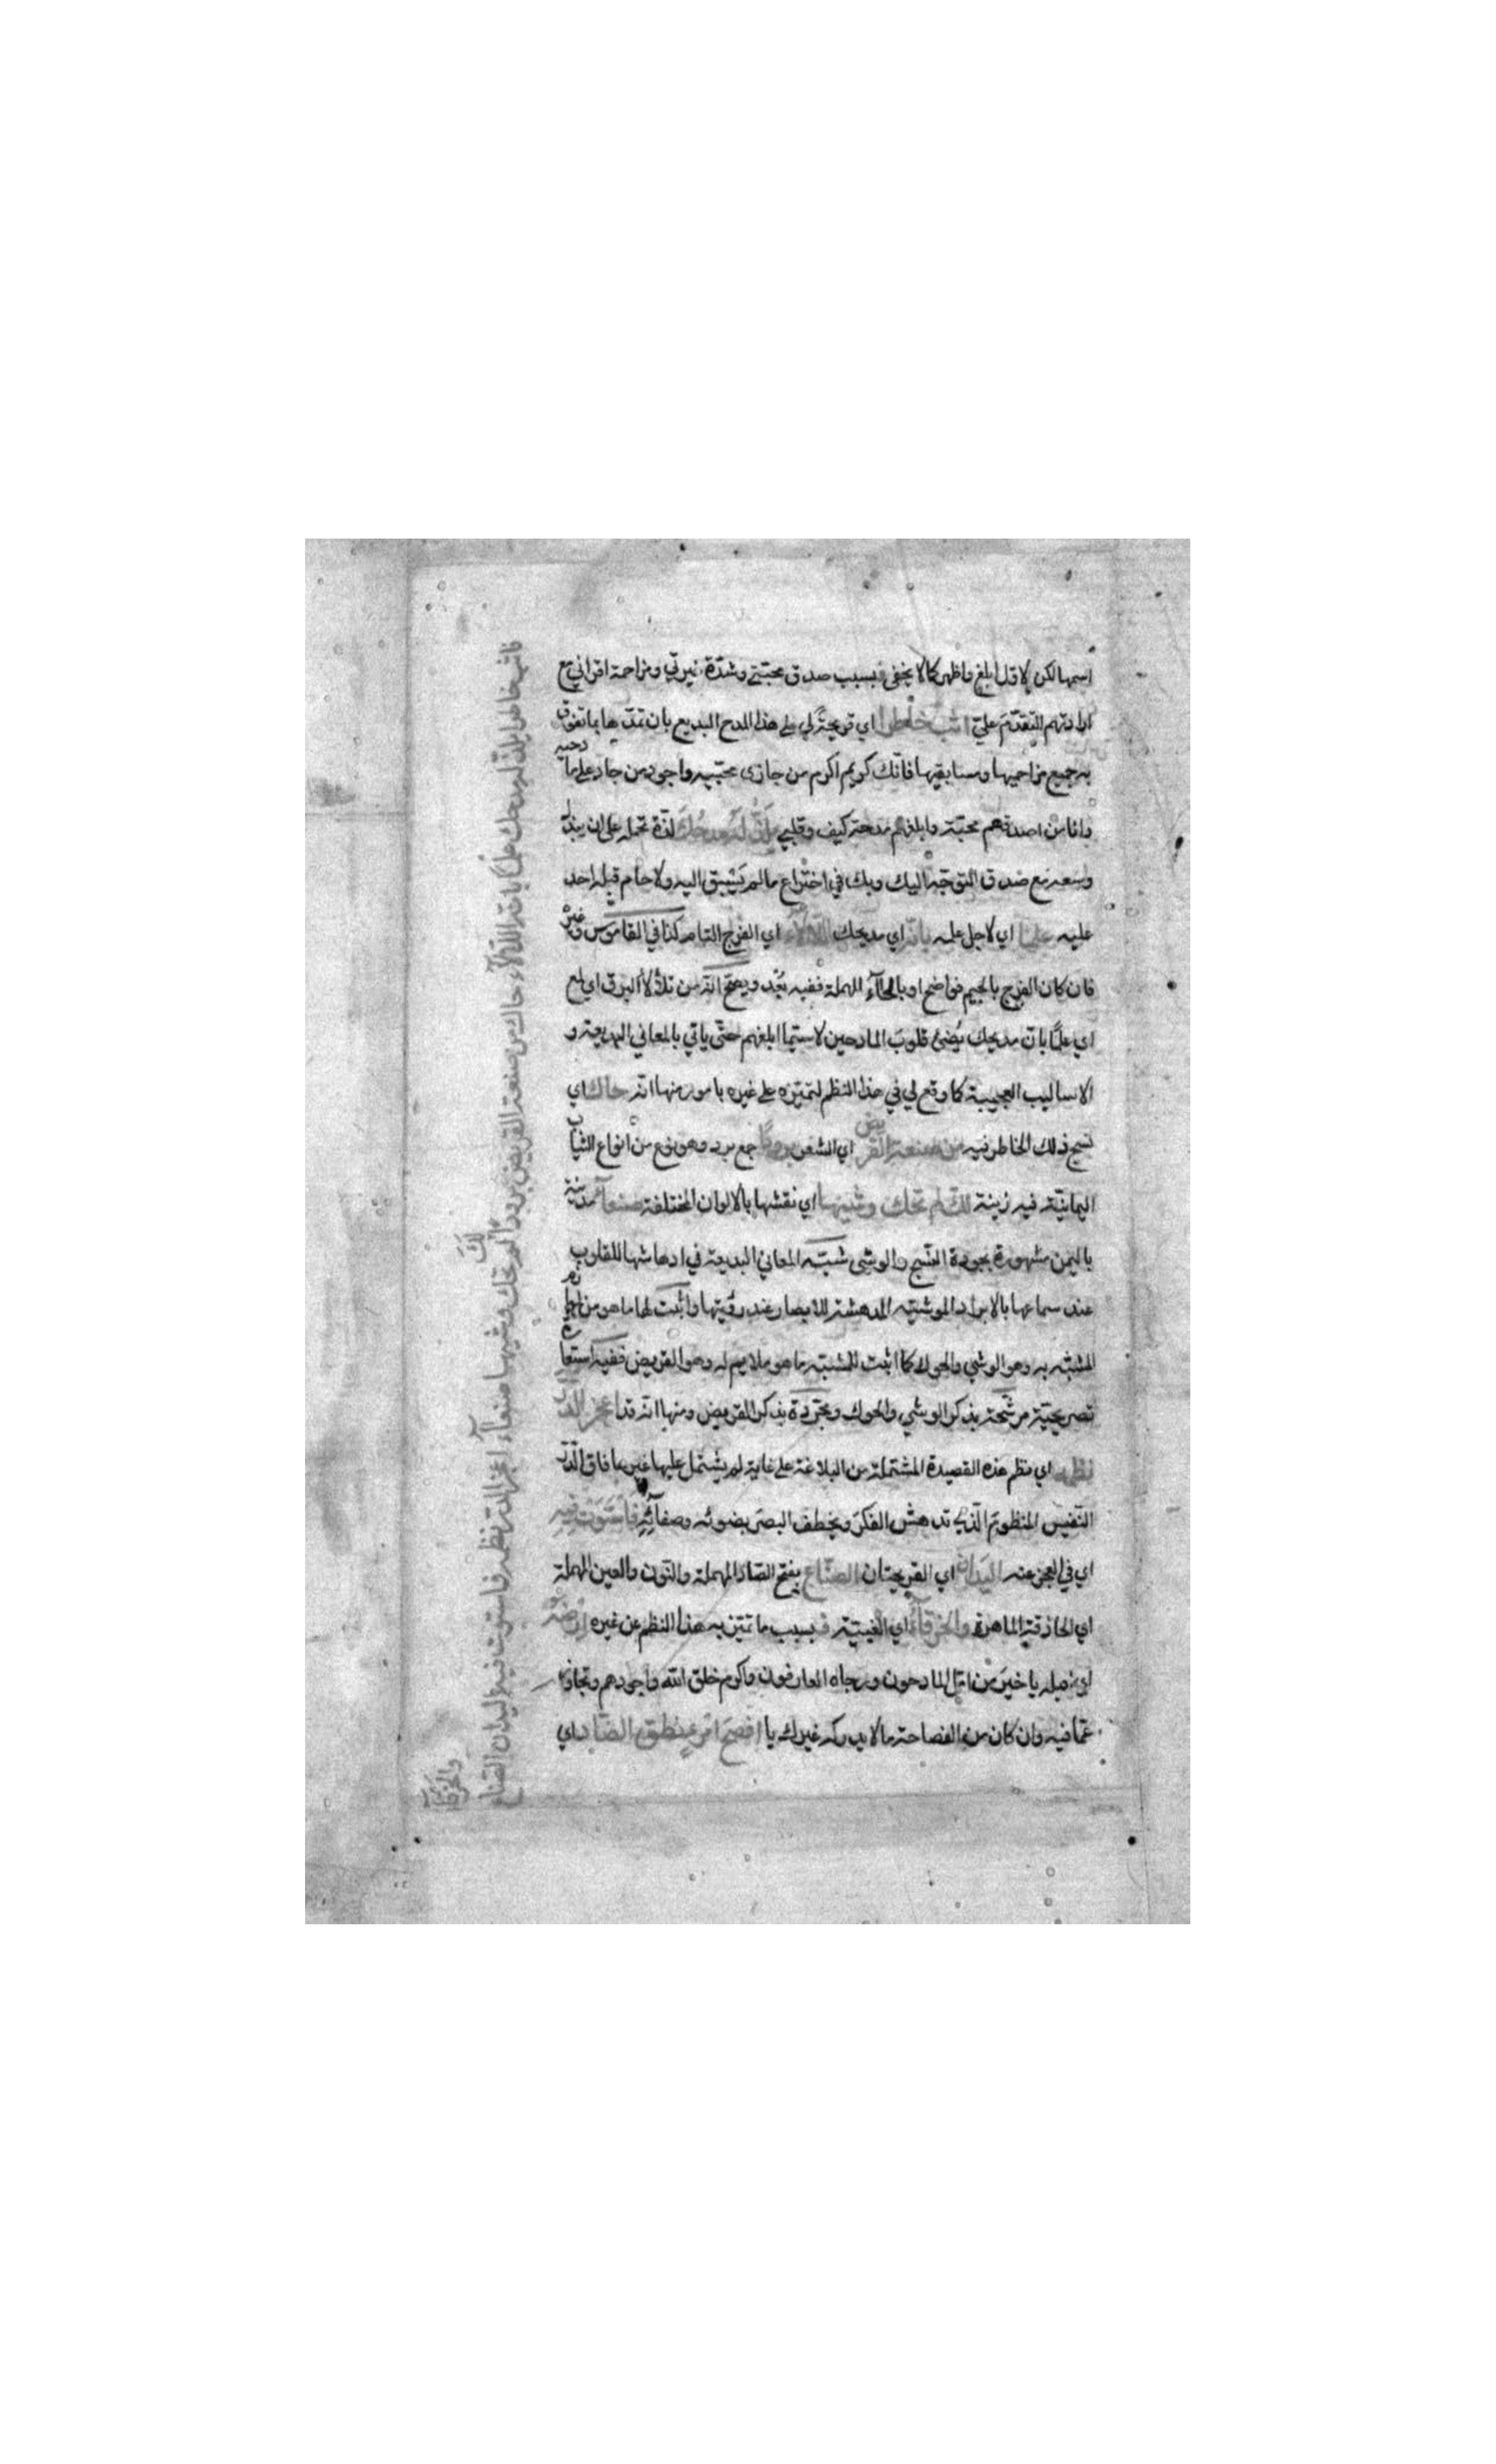 اسمها لكن لا قل ابلغ واظهر كما لا يخفى فبسبب صدق محبتي وشدّة غيرتي ومزاحمة اقراني مع
ارادتهم التقدّم عليّ اثب خاطرا اي قريحةً لي على هذا المدح البديع بان تمدّها بما تفوق
به جميع مزاحميها ومسابقيها فانّك كريم اكرم من جازى محبّيه واجود من جاد على مادحيه
وانا من اصدقهم محبّة وابلغهم مدحة كيف وقلبي يلذّ له مدحك لذّة تحمله على ان يبذل
وسعه مع صدق التوجّه اليك وبك في اختراع ما لم يُسبق اليه ولا حام قبله احد
عليه علما اي لاجل علمه بانّه اي مديحك اللألاء اي الفرج التام كذا في القاموس وغيره
فان كان الفرج بالجيم فواضح او بالحآء المهملة ففيه بُعد ويصحّ انّه من تلألأ البرق اي لمع
اي علمًا بانّ مديحك يُضئ قلوبَ المادحين لا سيّما ابلغهم حتّى ياتي بالمعاني البديعة و
الاساليب العجيبة كما وقع لي في هذا النظم لتميّزه على غيره بامور منها انّه حاك اي
نسج ذلك الخاطر فيه من صنعة القريض اي الشعر برودًا جمع برد وهو نوع من انواع الثياب
اليمانيّة فيه زينة لك لم تحك وشيها اي نقشها بالالوان المختلفة صنعآء مدينة
باليمن مشهورة بجودة النّسج والوشى شبّه المعاني البديعة في ادهاشها للقلوب
عند سماعها بالابراد الموشّية المدهشة للابصار عند رؤيتها واثبت لها ما هو من لوازم
المشبّه به وهو الوشي والحوك كما اثبت للمشبّه ما هو ملايم له وهو القريض ففيه استعارة
تصريحيّة مرشّحة بذكر الوشي والحوك ومجرّدة بذكر القريض ومنها انّه قد اعجز الدّرّ
نظمه اي نظم هذه القصيدة المشتملة من البلاغة على غاية لم يشتمل عليها غيرها فاق الدّرّ
النّفيس المنظوم الّذي تدهش الفكرَ ويخطف البصَر بضوئه وصفآئه فاستوت فيه
اي في العجز عنه اليَدان اي القريحتان الصنّاع بفتح الصّاد المهملة والنّون والعين المهملة
اي الحاذقة الماهرة والخرقآء اي الغبيّة فبسبب ما تميّز به هذا النظم عن غيره ارضه
اي اقبله يا خيرَ من امّل المادحون ورجاه العارفون واكرم خلق الله واجودهم وتجاوز
عمّا فيه وان كان من الفصاحة ما لا يدركه غيرك يا افصحَ امرءٍ نطق الضّاد اي
فاثب خاطرا يلذّ له مدحك علمًا بانّه اللألآء حاك من صنعة القريض برودا لك لم تحك وشيها صنعآء اعجز الدرّ نظمه فاستوت فيه اليدان الصّناع
والخرقآء